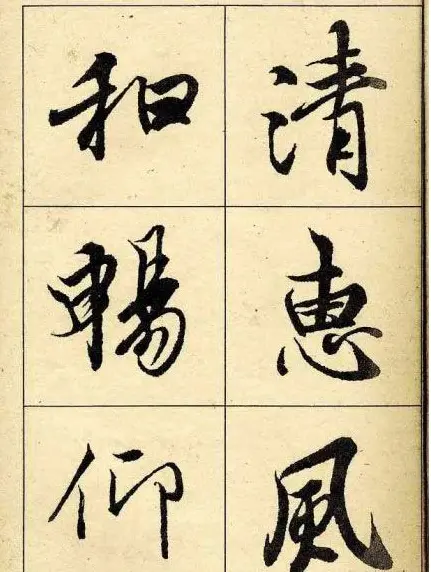 清惠風
和暢仰